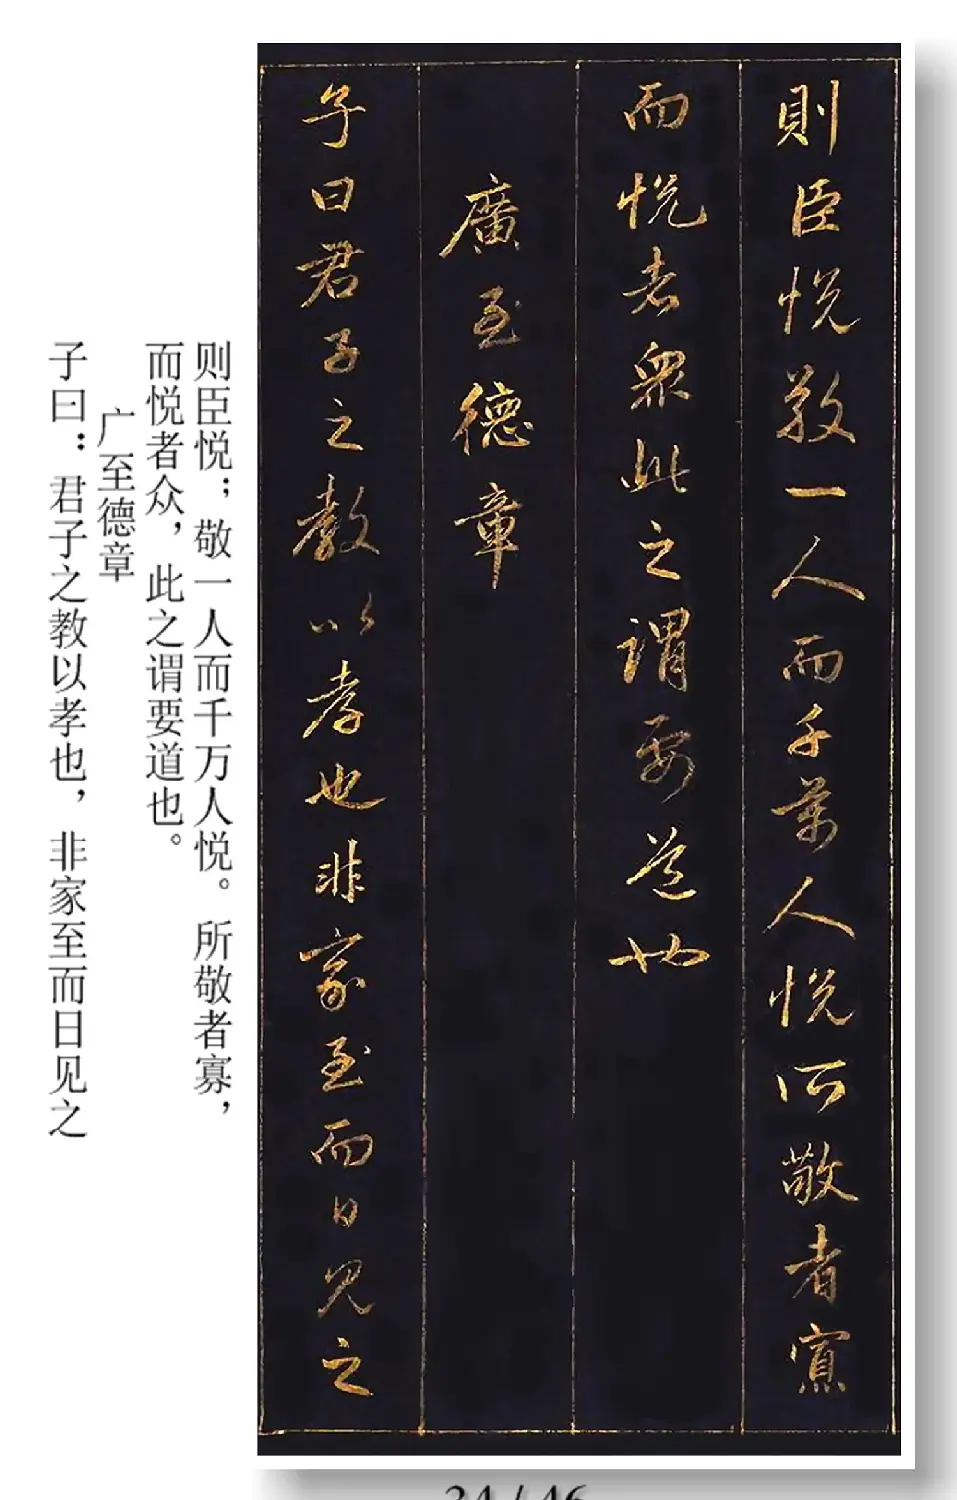 則臣悅敬一人而千萬人悅所敬者寡
而悅者眾此之謂要道也
廣至德章
子曰君子之教以孝也非家至而日見之
则臣悦；敬一人而千万人悦。所敬者寡，
而悦者众，此之谓要道也。
广至德章
子曰：君子之教以孝也，非家至而日见之
34 / 46